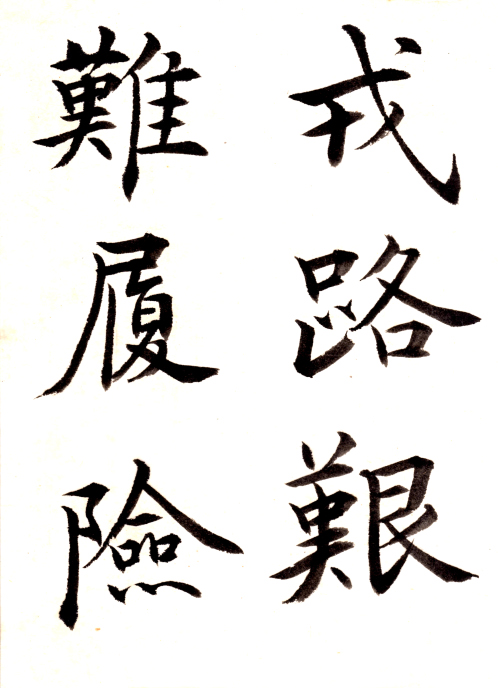 戎路艱
難履險